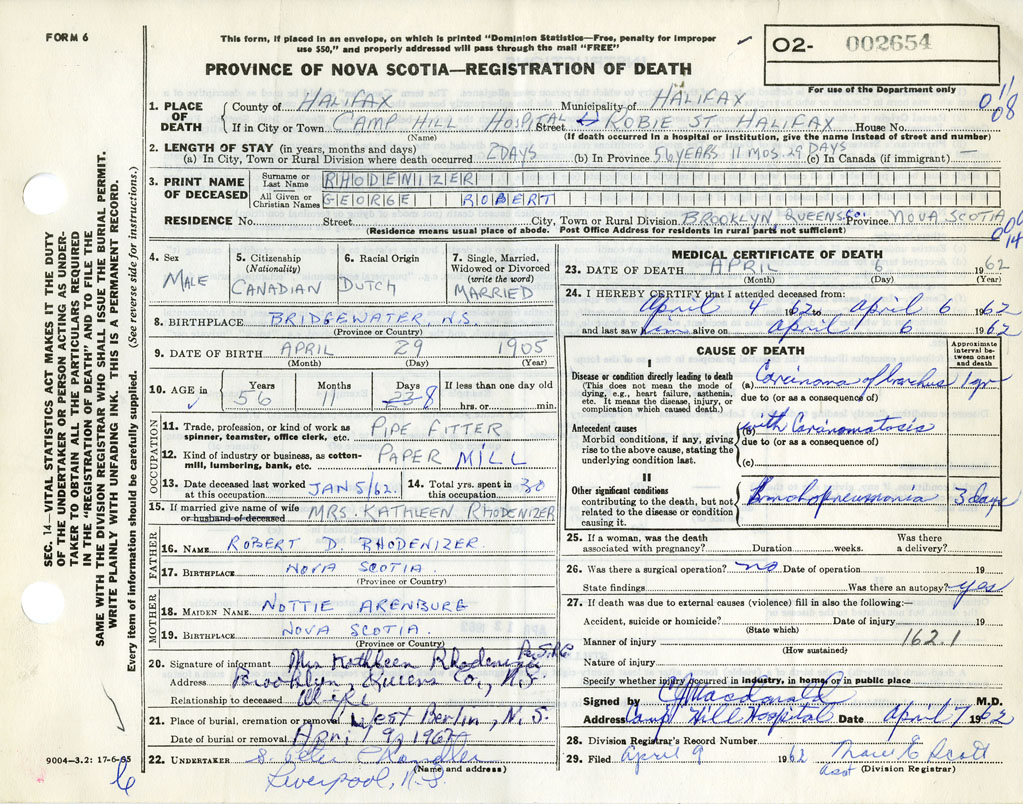 FORM 6
This form, if placed in an envelope, on which is printed "Dominion Statistics—Free, penalty for improper
use $50," and properly addressed will pass through the mail "FREE"
PROVINCE OF NOVA SCOTIA—REGISTRATION OF DEATH
02- 002654
For use of the Department only
SEC. 14—VITAL STATISTICS ACT MAKES IT THE DUTY
OF THE UNDERTAKER OR PERSON ACTING AS UNDER-
TAKER TO OBTAIN ALL THE PARTICULARS REQUIRED
IN THE "REGISTRATION OF DEATH" AND TO FILE THE
SAME WITH THE DIVISION REGISTRAR WHO SHALL ISSUE THE BURIAL PERMIT.
WRITE PLAINLY WITH UNFADING INK. THIS IS A PERMANENT RECORD.
Every item of information should be carefully supplied. (See reverse side for instructions.)
1. PLACE OF DEATH County of HALIFAX Municipality of HALIFAX
If in City or Town CAMP HILL HOSPITAL Street ROBIE ST HALIFAX House No.
(Name) (If death occurred in a hospital or institution, give the name instead of street and number)
2. LENGTH OF STAY (in years, months and days)
(a) In City, Town or Rural Division where death occurred 2 DAYS (b) In Province 56 YEARS 11 MOS. 29 DAYS (c) In Canada (if immigrant) —
3. PRINT NAME OF DECEASED Surname or Last Name RHODENIZER
All Given or Christian Names GEORGE ROBERT
RESIDENCE No. Street City, Town or Rural Division BROOKLYN, QUEENS Co. Province NOVA SCOTIA
(Residence means usual place of abode. Post Office Address for residents in rural parts not sufficient)
4. Sex MALE
5. Citizenship (Nationality) CANADIAN
6. Racial Origin DUTCH
7. Single, Married, Widowed or Divorced (write the word) MARRIED
8. BIRTHPLACE BRIDGEWATER N.S.
(Province or Country)
9. DATE OF BIRTH APRIL 29 1905
(Month) (Day) (Year)
10. AGE in Years 56 Months 11 Days 23 8 If less than one day old hrs. or min.
OCCUPATION
11. Trade, profession, or kind of work as spinner, teamster, office clerk, etc. PIPE FITTER
12. Kind of industry or business, as cotton-mill, lumbering, bank, etc. PAPER MILL
13. Date deceased last worked at this occupation JAN 5/62. 14. Total yrs. spent in this occupation 30
15. If married give name of wife or husband of deceased MRS. KATHLEEN RHODENIZER
FATHER
16. NAME ROBERT D. RHODENIZER
17. BIRTHPLACE NOVA SCOTIA
(Province or Country)
MOTHER
18. MAIDEN NAME NOTTIE ARENBURG
19. BIRTHPLACE NOVA SCOTIA.
(Province or Country)
20. Signature of informant Mrs Kathleen Rhodenizer
Address Brooklyn, Queens Co., N.S.
Relationship to deceased Wife
21. Place of burial, cremation or removal West Berlin, N.S.
Date of burial or removal April 9, 1962
22. UNDERTAKER Chandler
Liverpool, N.S.
(Name and address)
9004—3.2: 17-6-55
MEDICAL CERTIFICATE OF DEATH
23. DATE OF DEATH APRIL 6 1962
(Month) (Day) (Year)
24. I HEREBY CERTIFY that I attended deceased from:
April 4 1962 to April 6 1962
and last saw him alive on April 6 1962
CAUSE OF DEATH
Approximate interval between onset and death
I
Disease or condition directly leading to death
(This does not mean the mode of dying, e.g., heart failure, asthenia, etc. It means the disease, injury, or complication which caused death.)
(a) Carcinoma of bronchus 1 yr
due to (or as a consequence of)
Antecedent causes
Morbid conditions, if any, giving rise to the above cause, stating the underlying condition last.
(b) with Carcinomatosis
due to (or as a consequence of)
(c)
II
Other significant conditions
contributing to the death, but not related to the disease or condition causing it.
Bronchopneumonia 3 days
25. If a woman, was the death associated with pregnancy? Duration weeks. Was there a delivery?
26. Was there a surgical operation? no Date of operation 19
State findings Was there an autopsy? yes
27. If death was due to external causes (violence) fill in also the following:—
Accident, suicide or homicide? Date of injury 19
(State which)
Manner of injury 162.1
(How sustained)
Nature of injury
Specify whether injury occurred in industry, in home, or in public place
Signed by C Macdonald M.D.
Address Camp Hill Hospital Date April 7 1962
28. Division Registrar's Record Number
29. Filed April 9 1962 Scott
Asst (Division Registrar)